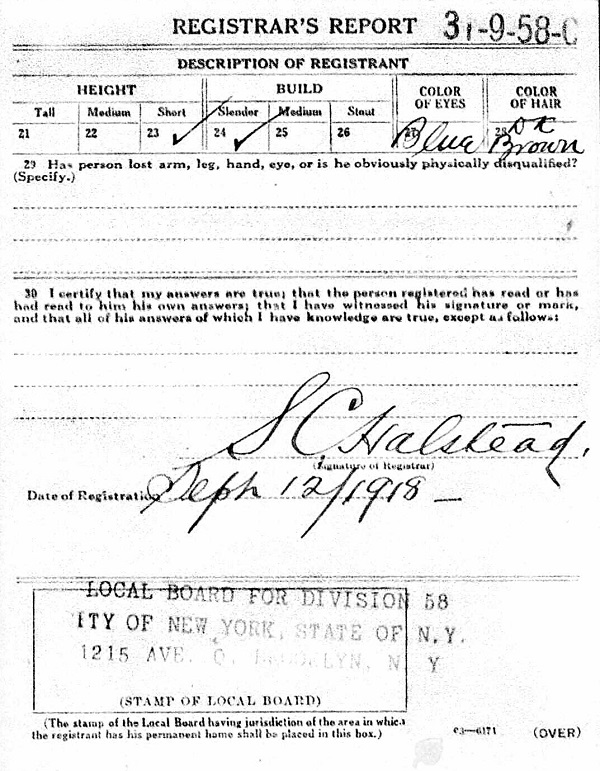 REGISTRAR'S REPORT 31-9-58-C
DESCRIPTION OF REGISTRANT
HEIGHT BUILD COLOR OF EYES COLOR OF HAIR
Tall Medium Short Slender Medium Stout
21 22 23 ✓ 24 ✓ 25 26 27 Blue 28 Dk Brown
29 Has person lost arm, leg, hand, eye, or is he obviously physically disqualified?
(Specify.)
30 I certify that my answers are true; that the person registered has read or has
had read to him his own answers; that I have witnessed his signature or mark,
and that all of his answers of which I have knowledge are true, except as follows:
S C Halstead,
(Signature of Registrar)
Date of Registration Sept 12/1918 —
LOCAL BOARD FOR DIVISION 58
ITY OF NEW YORK, STATE OF N.Y.
1215 AVE. BROOKLYN, N Y
(STAMP OF LOCAL BOARD)
(The stamp of the Local Board having jurisdiction of the area in which
the registrant has his permanent home shall be placed in this box.)
03—6171 (OVER)